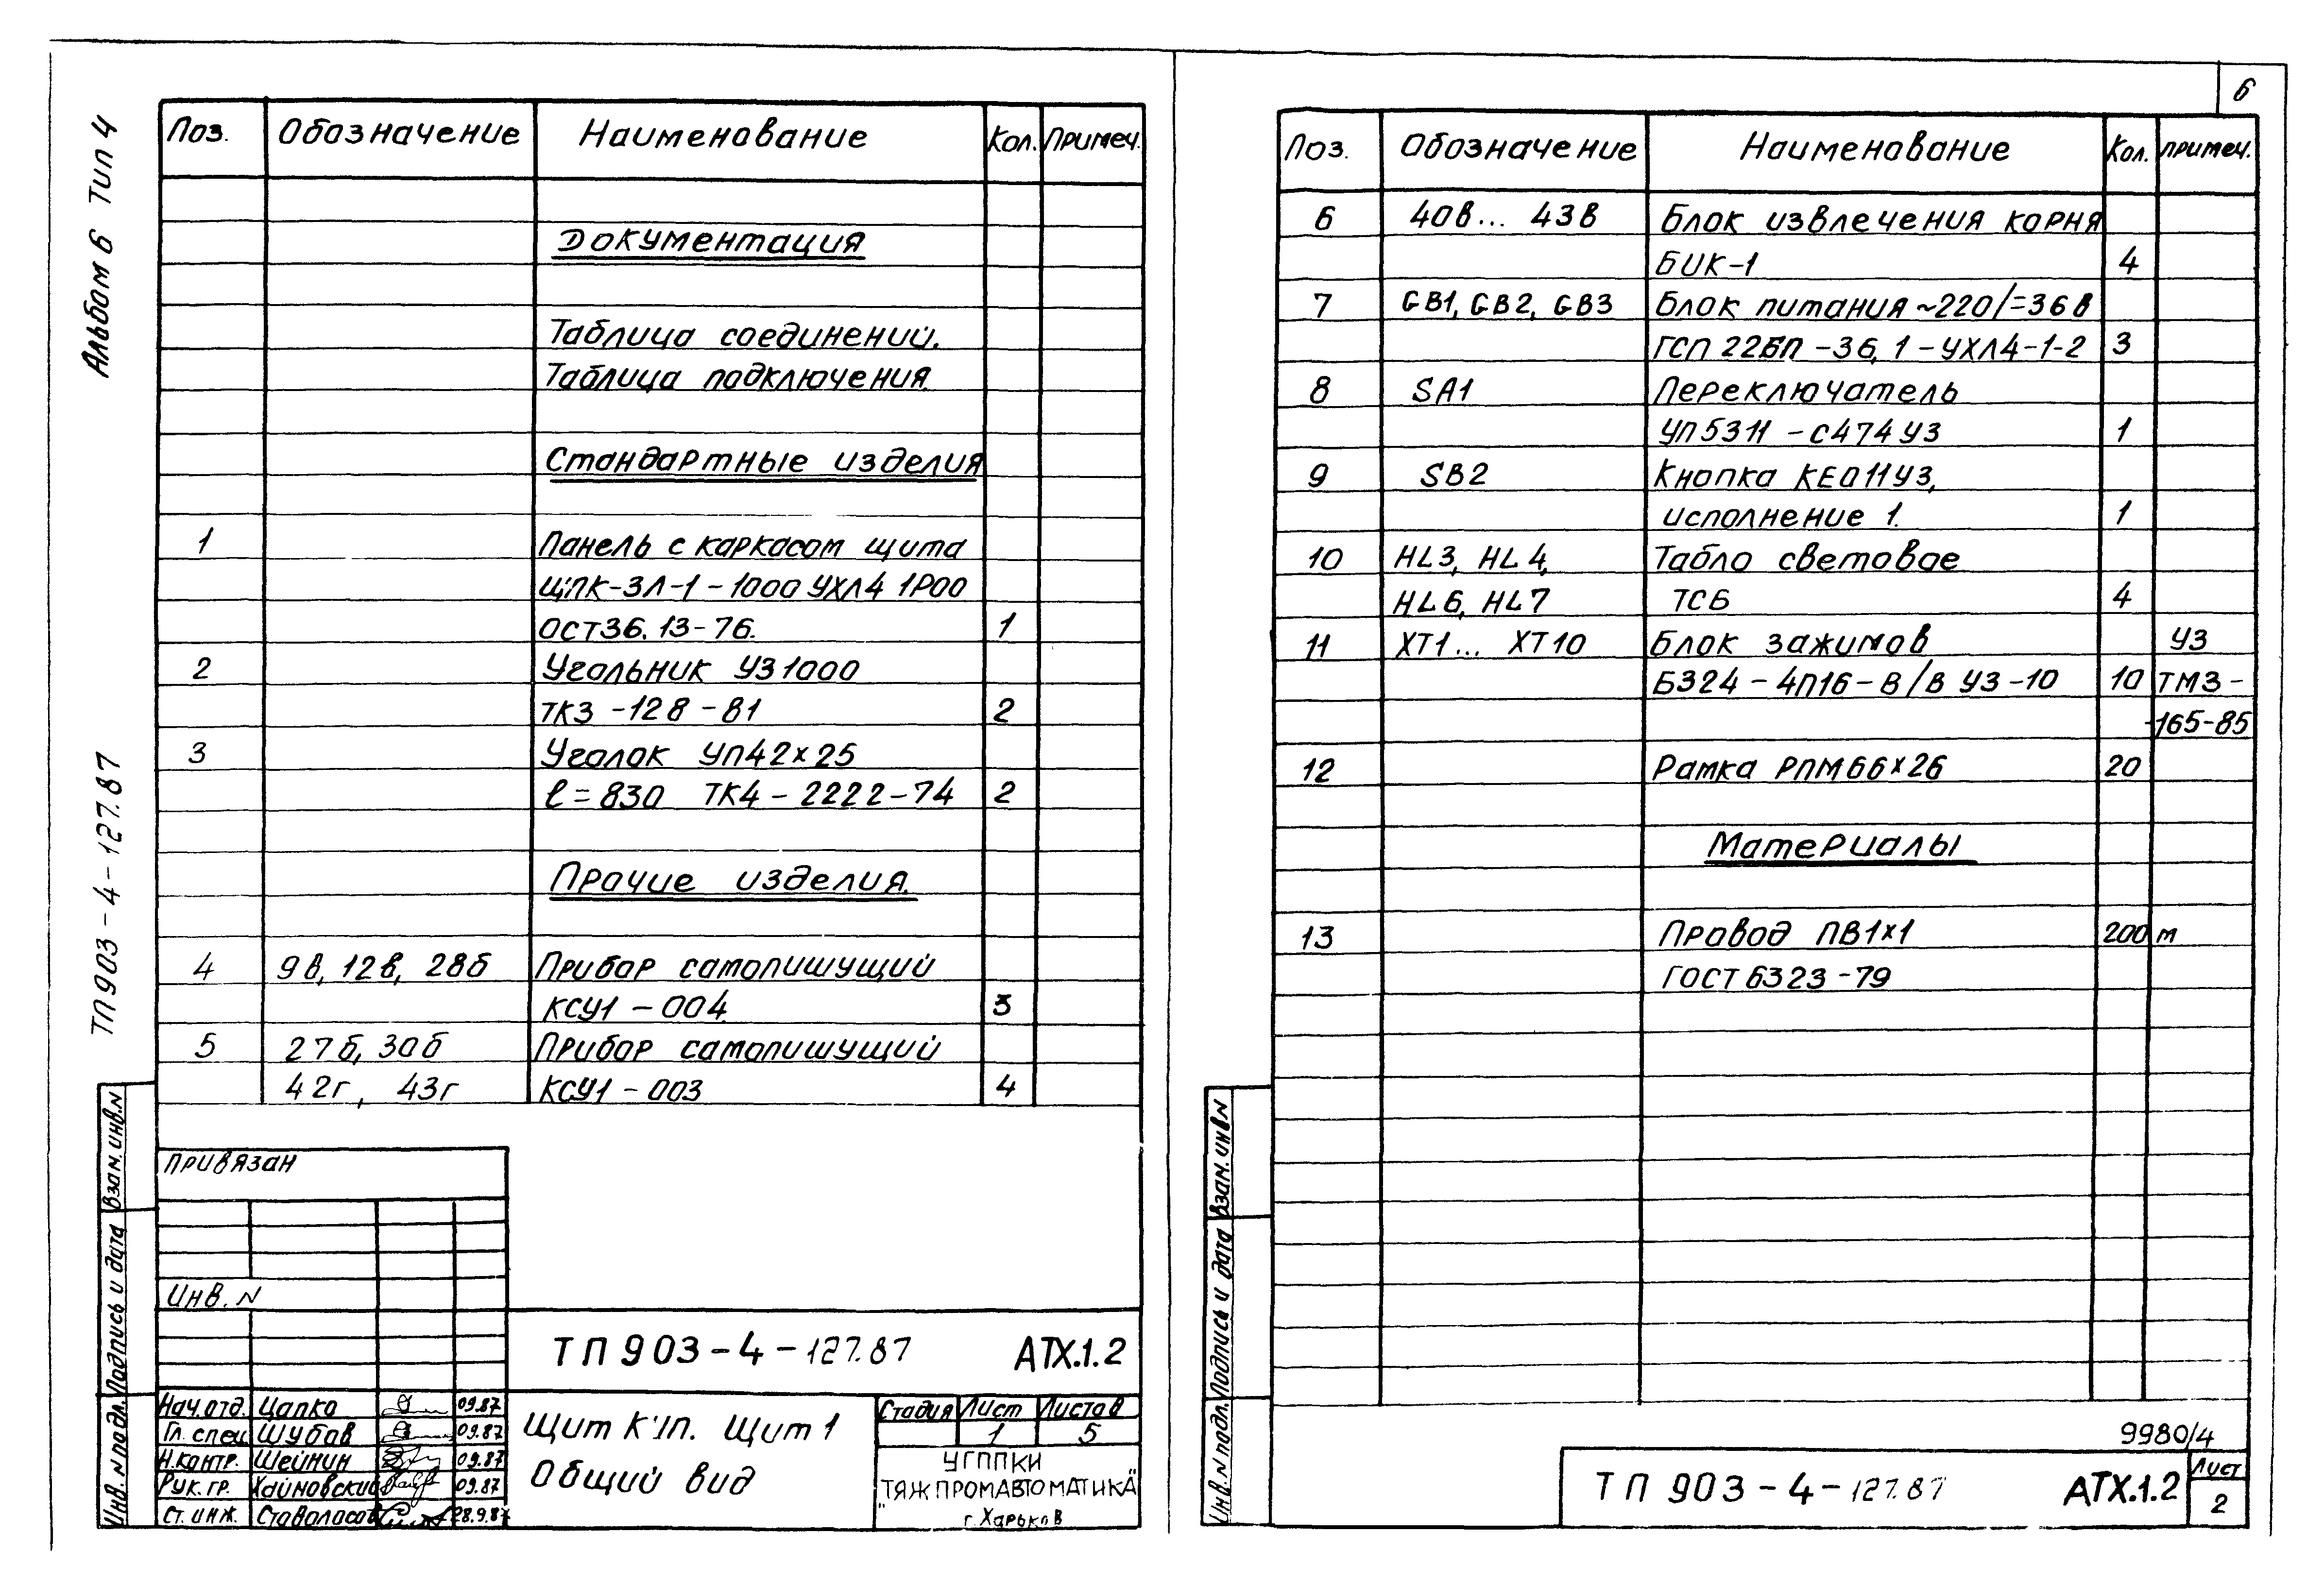 6
Альбом 6 Тип 4
ТП903-4-127.87
Поз. Обозначение Наименование Кол. Примеч.
Документация
Таблица соединений.
Таблица подключения.
Стандартные изделия
1 Панель с каркасом щита
ЩПК-ЗЛ-1-1000 УХЛ4 1Р00
ОСТ36.13-76. 1
2 Угольник УЗ1000
ТК3-128-81 2
3 Уголок УП42х25
ℓ=830 ТК4-2222-74 2
Прочие изделия.
4 9в, 12в, 28б Прибор самопишущий
КСУ1-004 3
5 27б, 30б Прибор самопишущий
42г, 43г КСУ1-003 4
Привязан
Инв. N
ТП 903-4-127.87 АТХ.1.2
Нач.отд. Цапко 09.87
Гл. спец Шубов 09.87
Н.контр. Шейнин 09.87
Рук. гр. Хайновский 09.87
Ст. инж. 28.9.87
Щит КИП. Щит 1
Общий вид
Стадия Лист Листов
1 5
УГППКИ
"ТЯЖПРОМАВТОМАТИКА"
г. Харьков
Инв. N подл. Подпись и дата Взам. инв. N
Поз. Обозначение Наименование Кол. Примеч.
6 40в... 43в Блок извлечения корня
БИК-1 4
7 GB1, GB2, GB3 Блок питания ~220/=36 в
ГСП 22БП-36, 1-УХЛ4-1-2 3
8 SA1 Переключатель
УП5311-С474 У3 1
9 SB2 Кнопка КЕ011У3,
исполнение 1. 1
10 HL3, HL4, Табло световое
HL6, HL7 ТСБ 4
11 XT1... XT10 Блок зажимов У3
Б324-4П16-В/В У3-10 10 ТМ3-
-165-85
12 Рамка РПМ66х26 20
Материалы
13 Провод ПВ1х1 200 м
ГОСТ 6323-79
Инв. N подл. Подпись и дата Взам. инв N
9980/4
ТП 903-4-127.87 АТХ.1.2
Лист
2